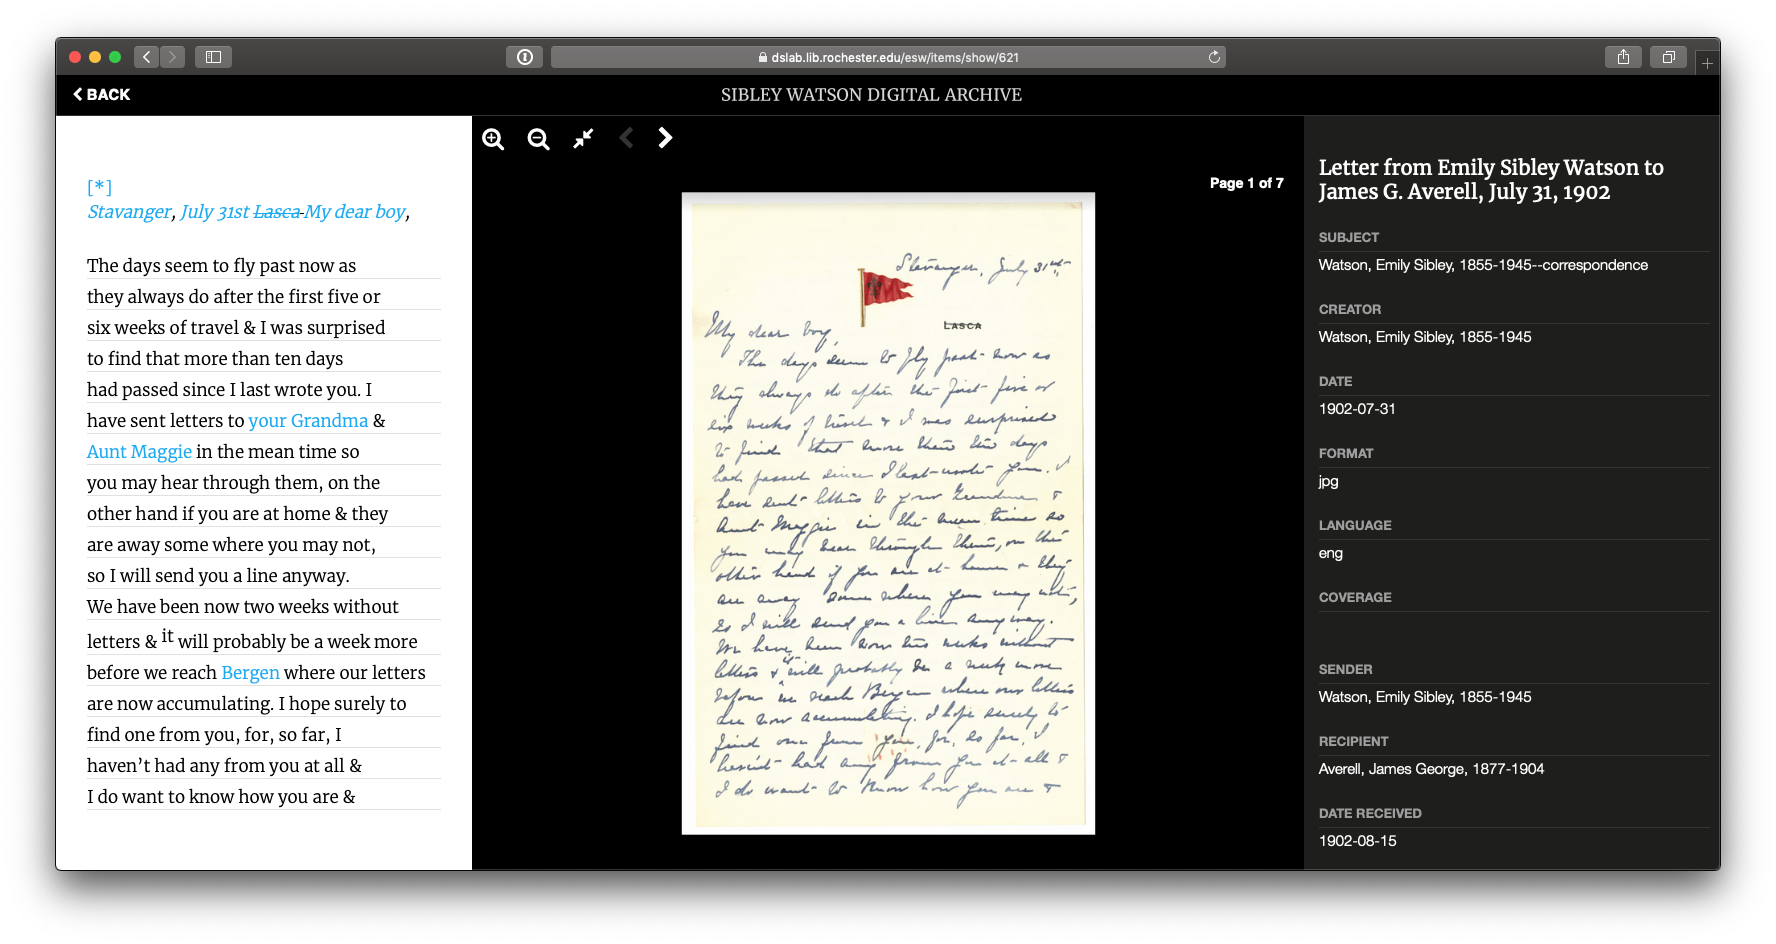 dslab.lib.rochester.edu/esw/items/show/621
BACK
SIBLEY WATSON DIGITAL ARCHIVE
[*]
Stavanger, July 31st Lasca My dear boy,
The days seem to fly past now as
they always do after the first five or
six weeks of travel & I was surprised
to find that more than ten days
had passed since I last wrote you. I
have sent letters to your Grandma &
Aunt Maggie in the mean time so
you may hear through them, on the
other hand if you are at home & they
are away some where you may not,
so I will send you a line anyway.
We have been now two weeks without
letters & it will probably be a week more
before we reach Bergen where our letters
are now accumulating. I hope surely to
find one from you, for, so far, I
haven't had any from you at all &
I do want to know how you are &
Page 1 of 7
Stavanger, July 31st
LASCA
My dear boy,
The days seem to fly past now as
they always do after the first five or
six weeks of travel & I was surprised
to find that more than ten days
had passed since I last wrote you. I
have sent letters to your Grandma &
Aunt Maggie in the mean time so
you may hear through them, on the
other hand if you are at home & they
are away some where you may not,
so I will send you a line anyway.
We have been now two weeks without
letters & it will probably be a week more
before we reach Bergen where our letters
are now accumulating. I hope surely to
find one from you, for, so far, I
haven't had any from you at all &
I do want to know how you are &
Letter from Emily Sibley Watson to
James G. Averell, July 31, 1902
SUBJECT
Watson, Emily Sibley, 1855-1945--correspondence
CREATOR
Watson, Emily Sibley, 1855-1945
DATE
1902-07-31
FORMAT
jpg
LANGUAGE
eng
COVERAGE
SENDER
Watson, Emily Sibley, 1855-1945
RECIPIENT
Averell, James George, 1877-1904
DATE RECEIVED
1902-08-15